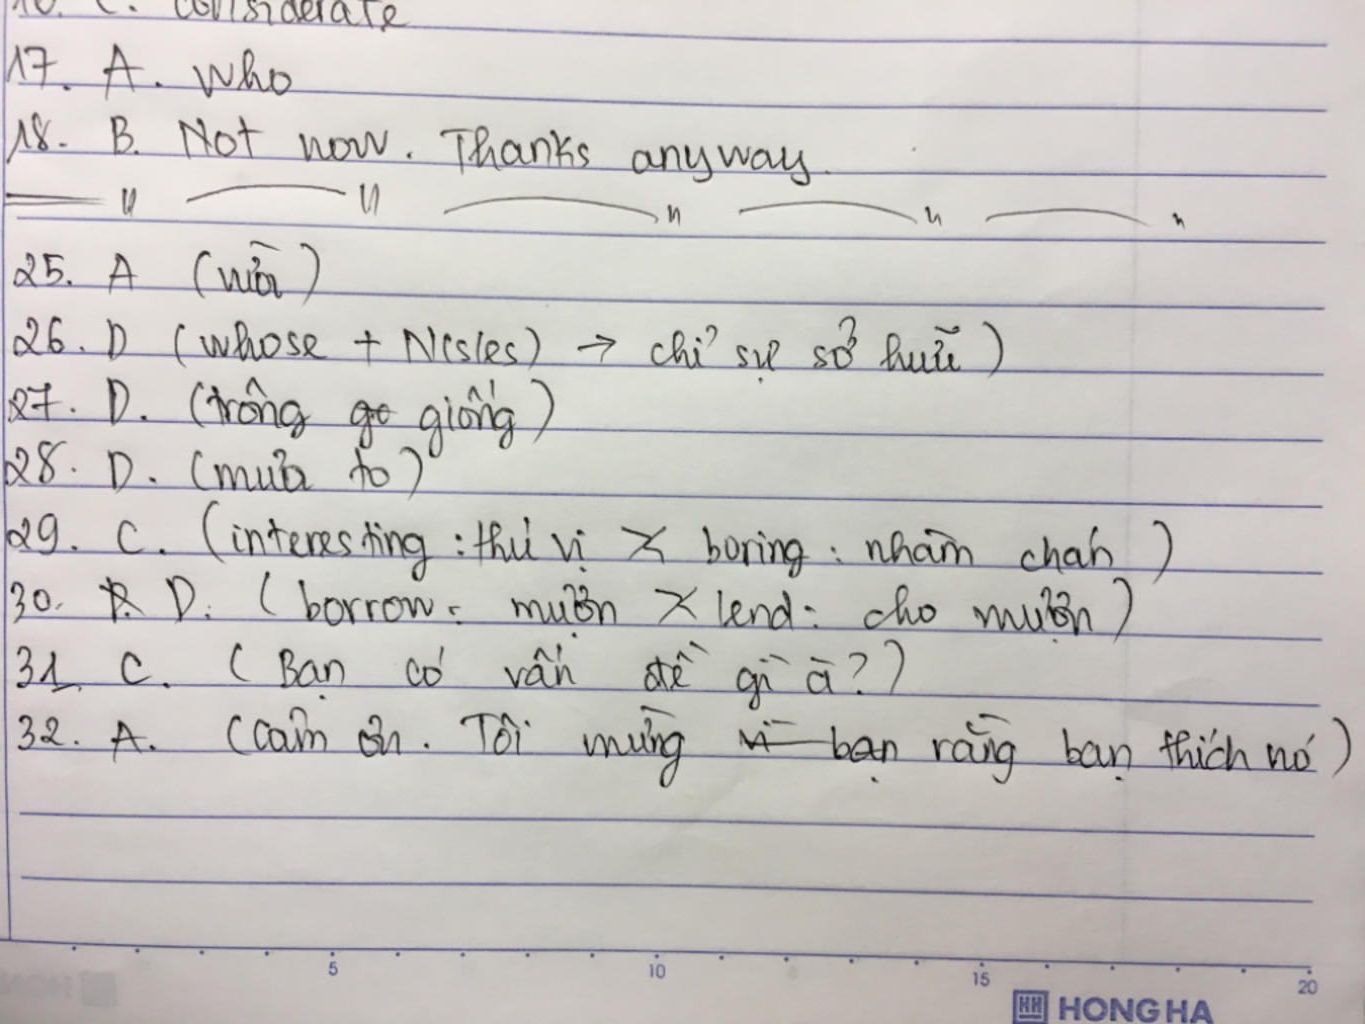 16. C. considerate
17. A. Who
18. B. Not now. Thanks anyway.
25. A (vừa)
26. D (whose + N(s/es) → chỉ sự sở hữu)
27. D. (trông giống)
28. D. (mưa to)
29. C. (interesting : thú vị X boring : nhàm chán)
30. D. (borrow : mượn X lend : cho mượn)
31. C. (Bạn có vấn đề gì à?)
32. A. (Cảm ơn. Tôi mừng rằng bạn thích nó)
5 10 15 20
HH HONG HA